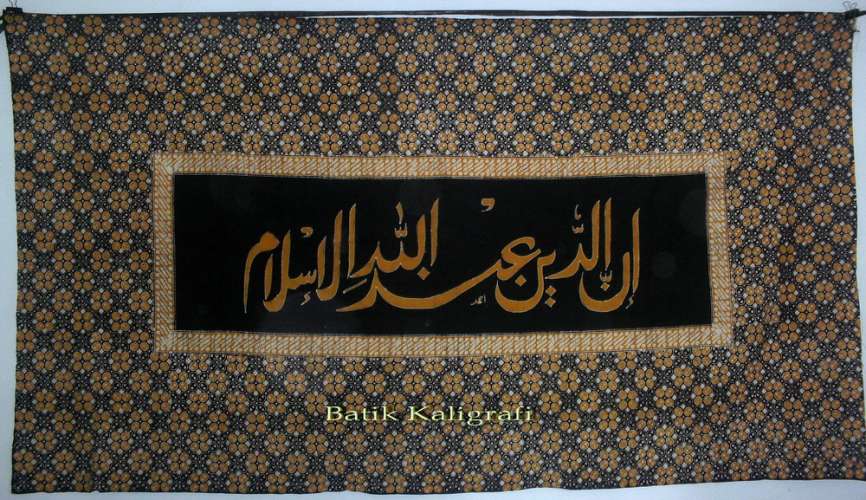 إنّ الدّين عند الله الإسلام
أحمد
Batik Kaligrafi